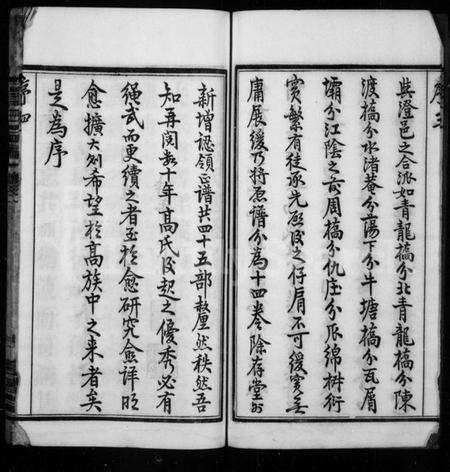 序三
與澄邑之合派如青龍橋分北青龍橋分陳
渡橋分水渚菴分蕩下分牛塘橋分瓦屑
壩分江陰之前周橋分仇庄分派綿椒衍
實繁有徒承先啟後之仔肩不可緩實無
庸展緩乃將原譜分為十四卷除存堂外
新增認領正譜共四十五部釐然秩然吾
知再閱數十年高氏後起之優秀必有
繩武而更續之者至於愈研究愈詳明
愈擴大則希望於高族中之來者矣
是為序
序四